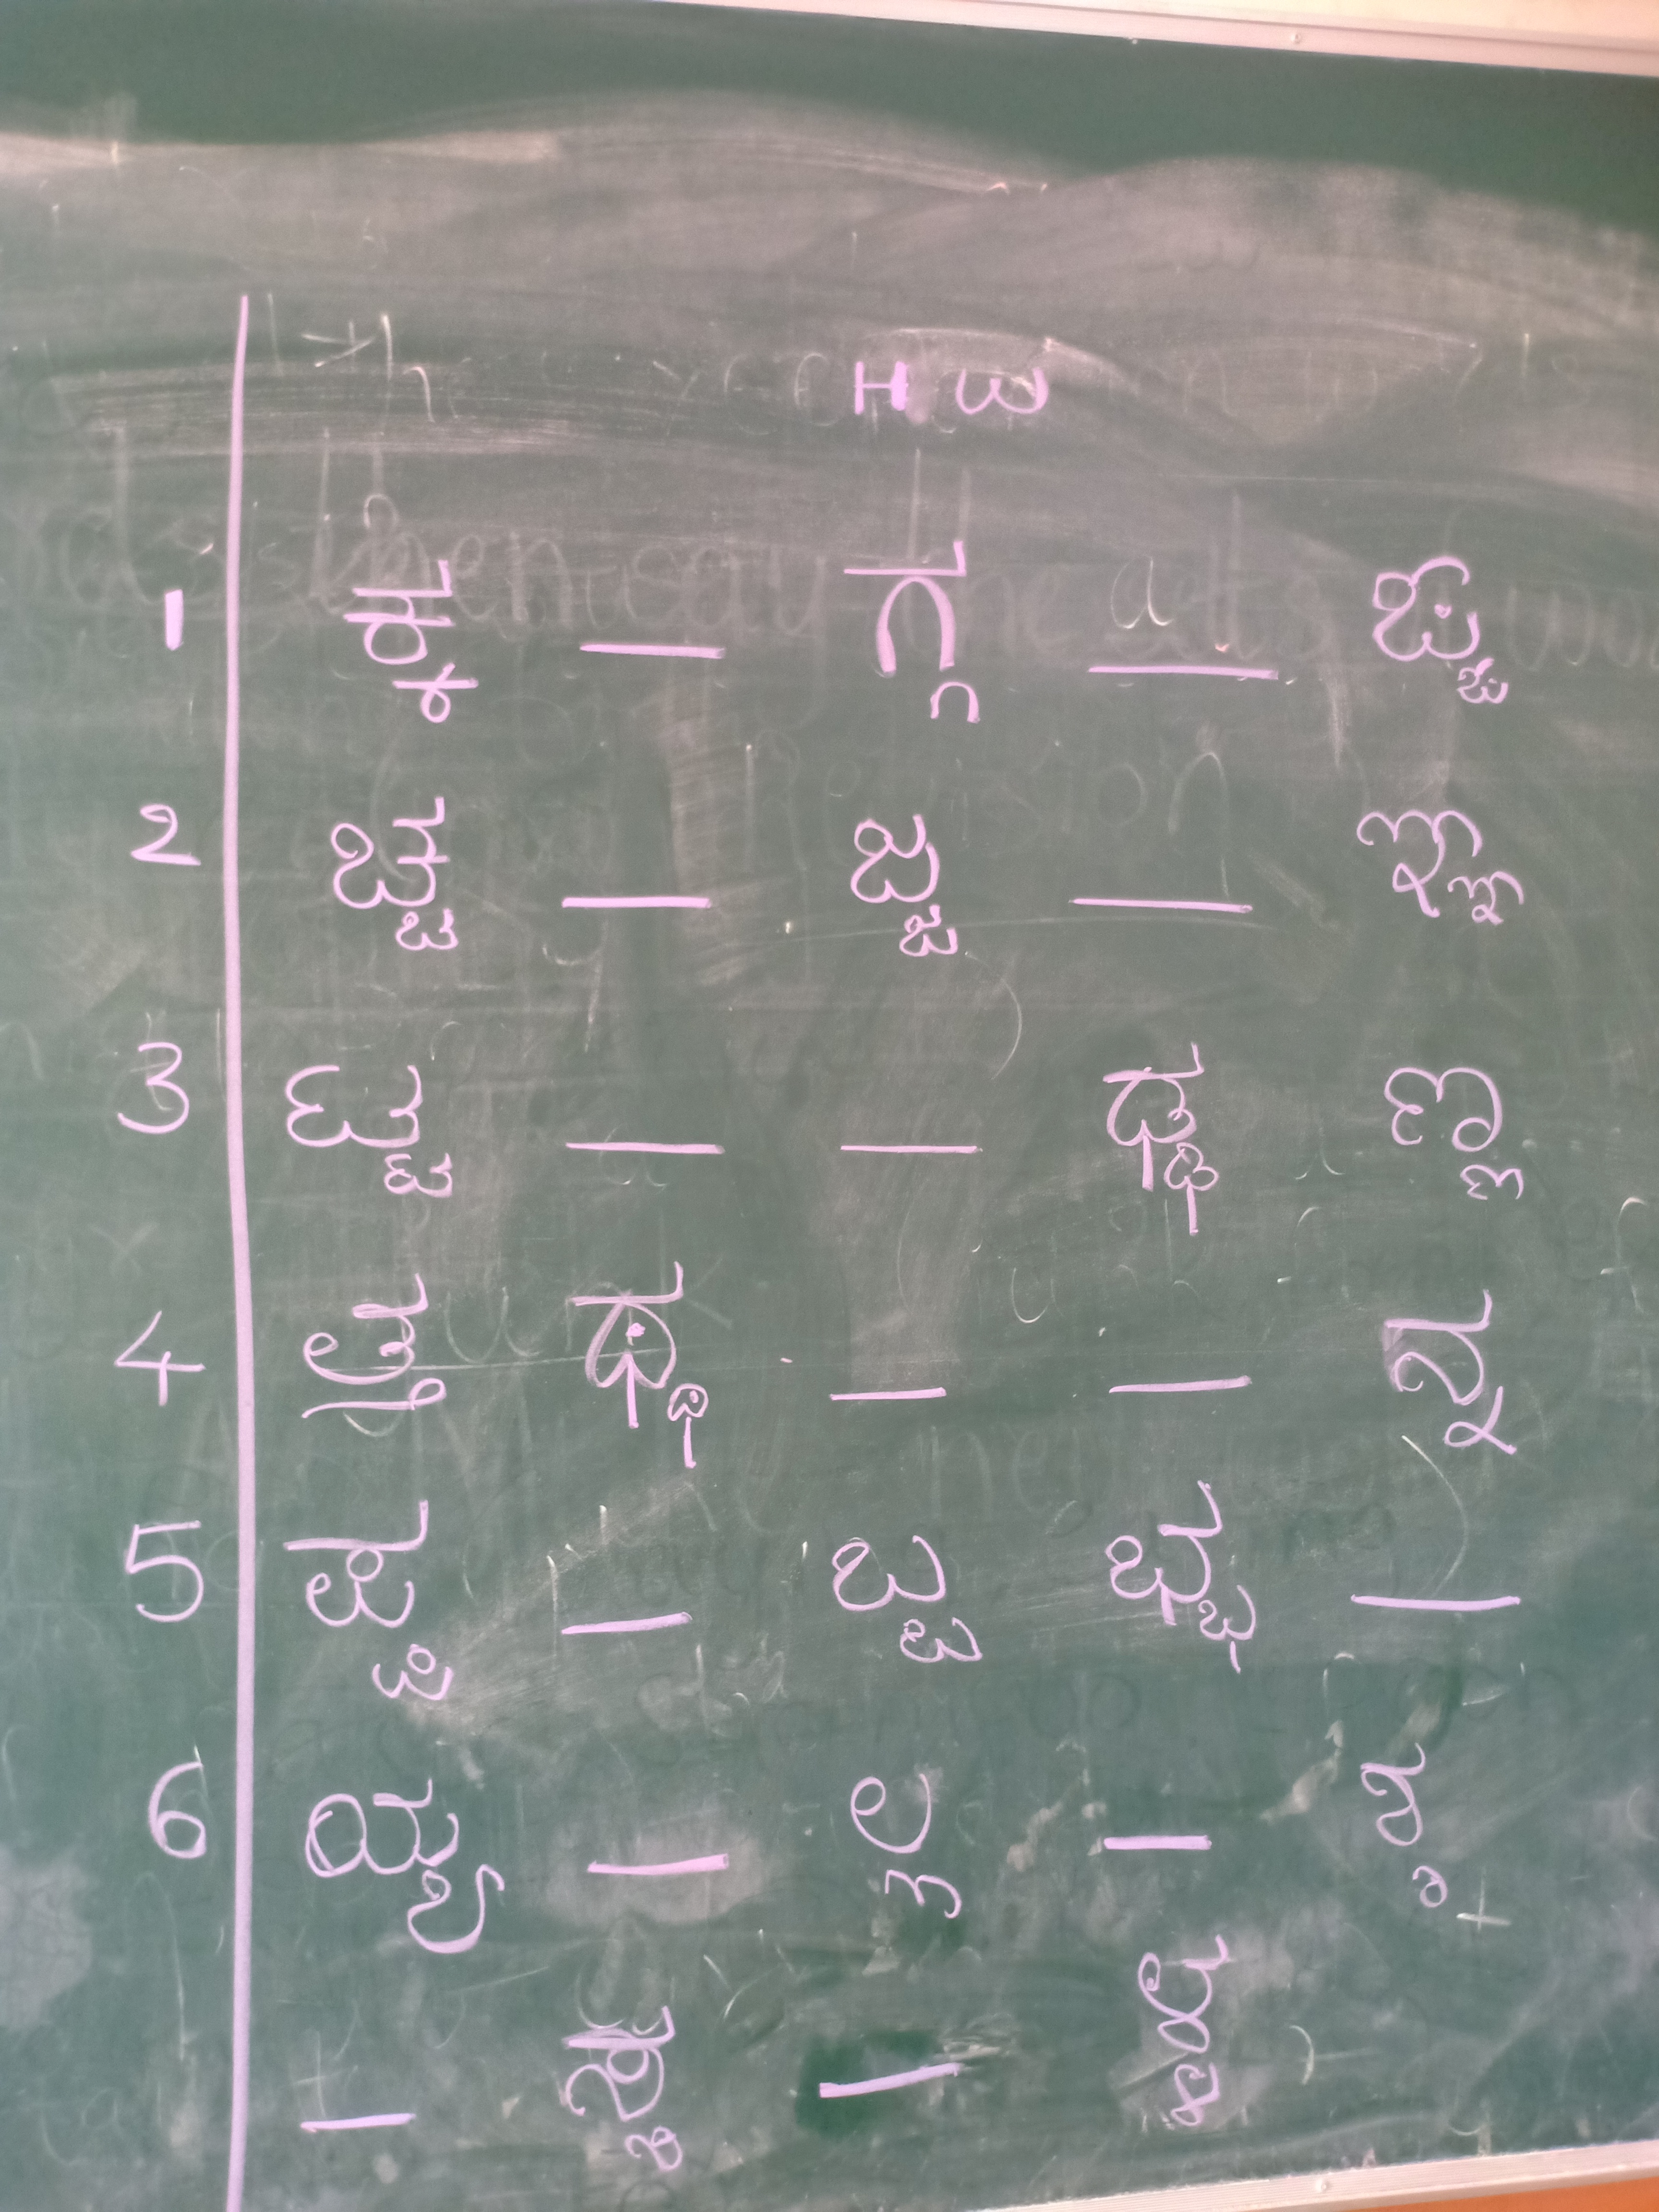 HW
1 ಕ್ಕ — ಗ್ಗ — ಙ್ಙ
2 ಚ್ಚ — ಜ್ಜ — ಞ್ಞ
3 ಟ್ಟ — — ಢ್ಢ ಣ್ಣ
4 ತ್ತ ಥ್ಥ — — ನ್ನ
5 ಪ್ಪ — ಬ್ಬ ಭ್ಭ —
6 ಯ್ಯ — ಲ್ಲ — ಶ್ಶ
— ಸ್ಸ — ಳ್ಳ